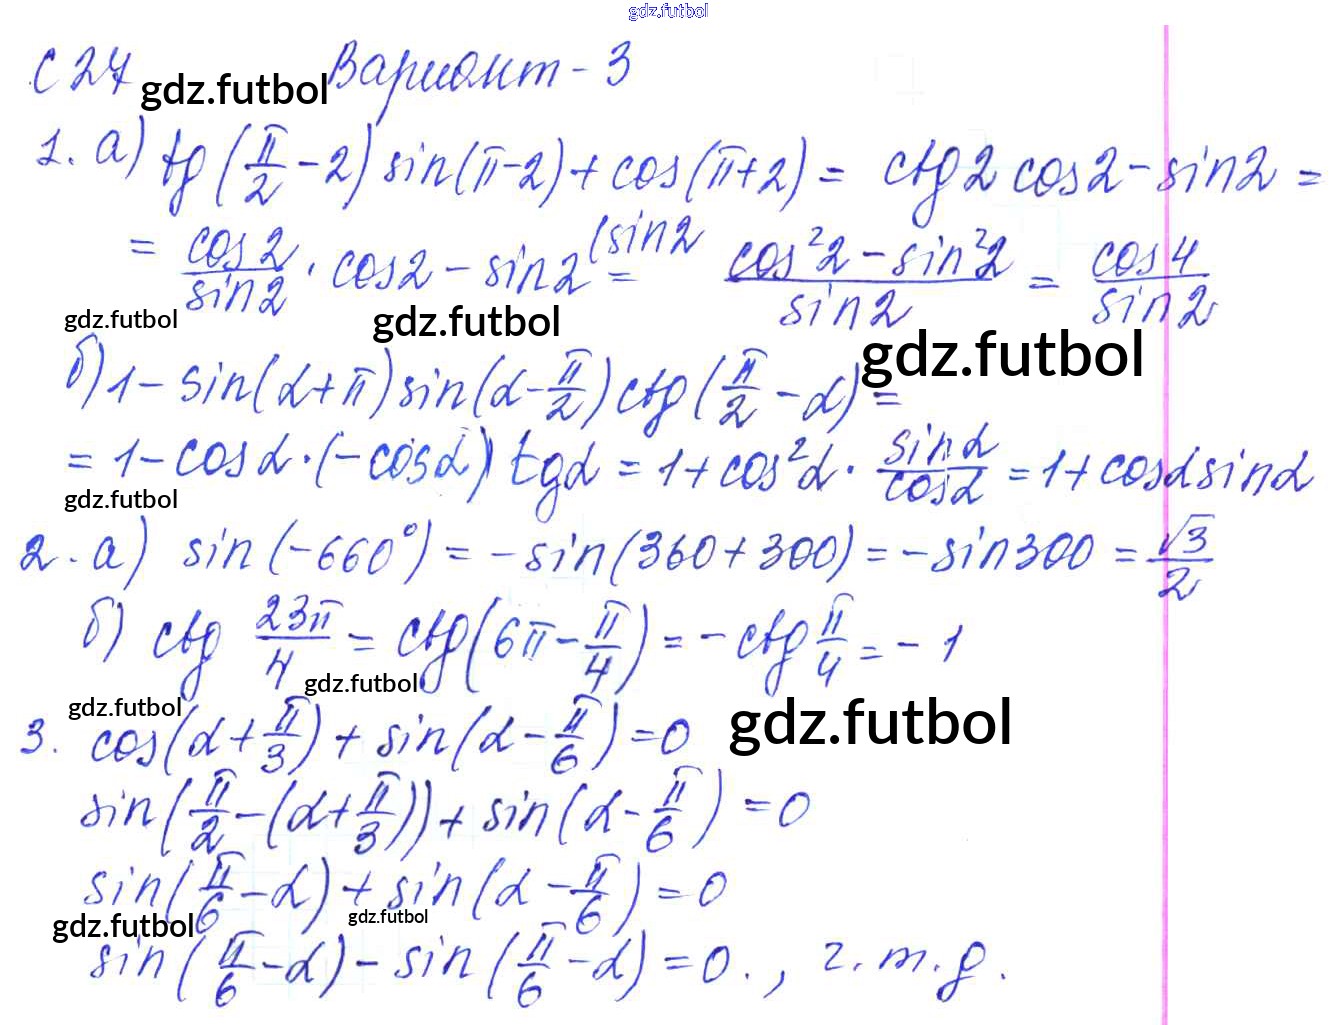 gdz.futbol
С 27 gdz.futbol Вариант - 3
1. а) tg(π/2 - 2) sin(π-2) + cos(π+2) = ctg2 cos2 - sin2 =
= cos2/sin2 · cos2 - sin2 (sin2 = cos²2 - sin²2/sin2 = cos4/sin2
gdz.futbol gdz.futbol
б) 1 - sin(α+π) sin(α - π/2) ctg(π/2 - α) = gdz.futbol
= 1 - cosα · (-cosα) tgα = 1 + cos²α · sinα/cosα = 1 + cosα sinα
gdz.futbol
2. а) sin(-660°) = -sin(360+300) = -sin300 = √3/2
б) ctg 23π/4 = ctg(6π - π/4) = -ctg π/4 = -1
gdz.futbol
gdz.futbol gdz.futbol
3. cos(α + π/3) + sin(α - π/6) = 0
sin(π/2 - (α + π/3)) + sin(α - π/6) = 0
sin(π/6 - α) + sin(α - π/6) = 0
gdz.futbol gdz.futbol
sin(π/6 - α) - sin(π/6 - α) = 0., г. т. д.